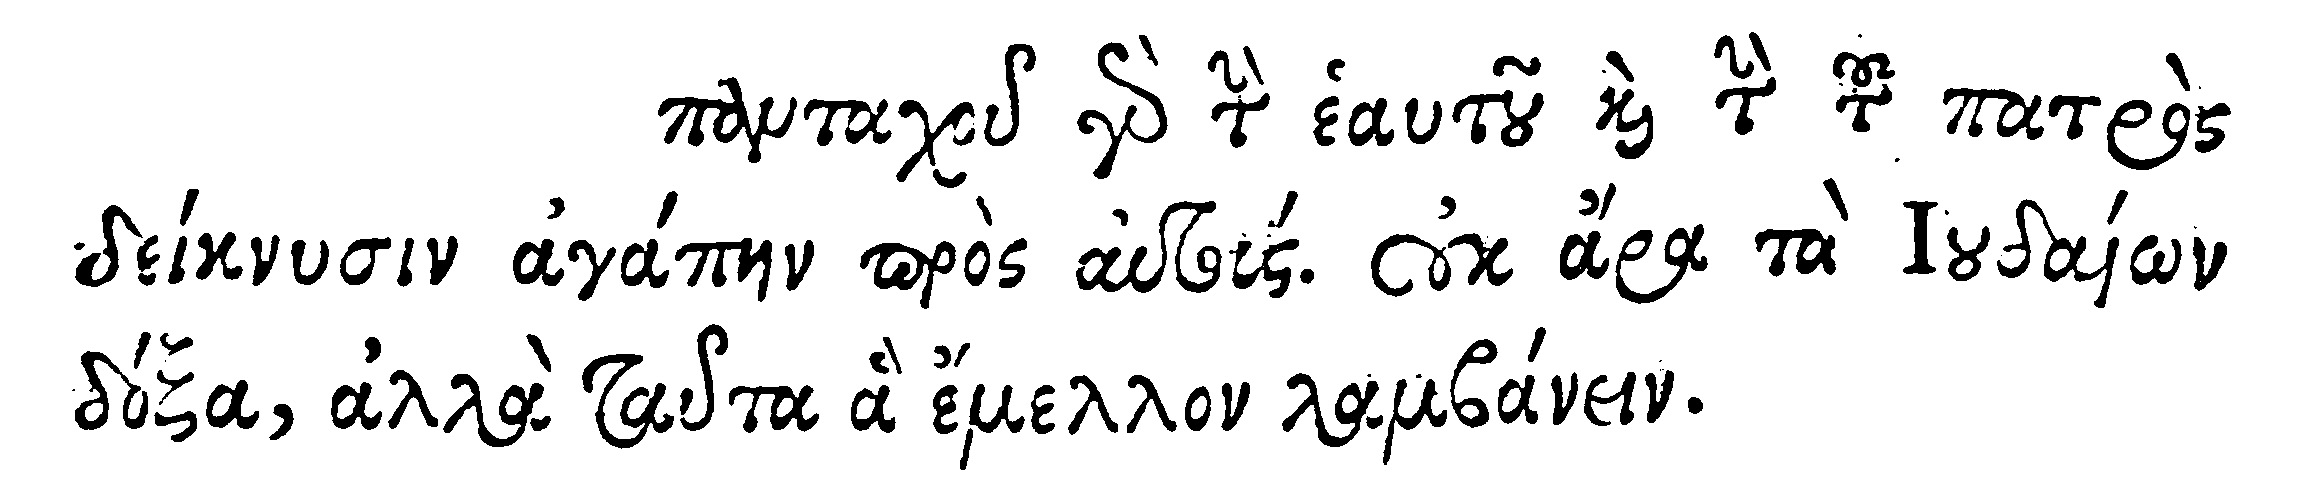 πανταχοῦ γὸ τὴν ἑαυτοῦ καὶ τὴν τοῦ πατρὸς
δείκνυσιν ἀγάπην πρὸς αὐτούς. οὐκ ἄρα τὰ Ιουδαίων
δόξα, ἀλλὰ ταῦτα ἃ ἔμελλον λαμβάνειν.